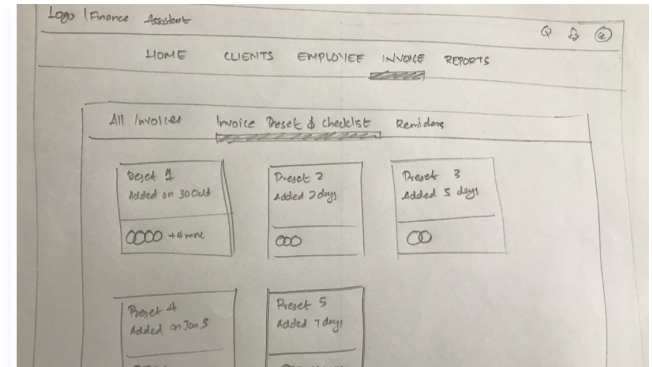 Logo | Finance Assistent
HOME CLIENTS EMPLOYEE INVOICE REPORTS
All Invoices Invoice Preset & Checklist Reminders
Preset 1
Added on 30 Oct
+4 more
Preset 2
Added 2 days
Preset 3
Added 5 days
Preset 4
Added on Jan 5
Preset 5
Added 7 days